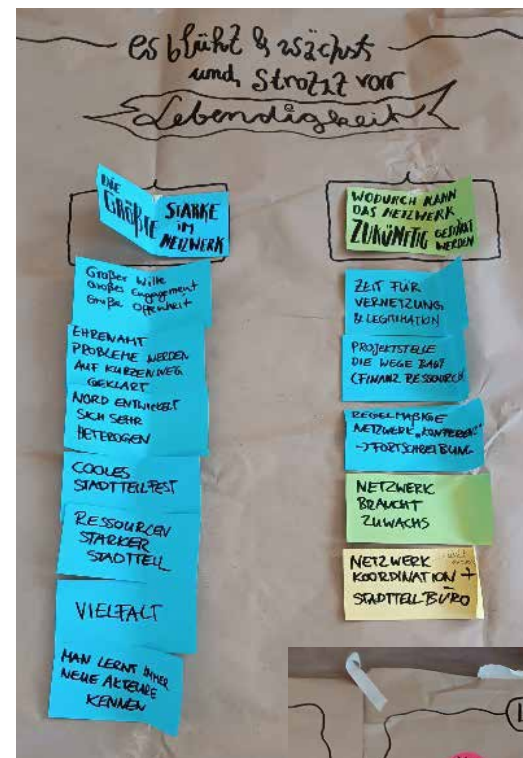 es blüht & wächst
und strotzt vor
Lebendigkeit
DIE
GRÖßTE STÄRKE
IM
NETZWERK
Großer Wille
Großes Engagement
Große Offenheit
EHRENAMT
PROBLEME WERDEN
AUF KURZEN WEG
GEKLÄRT
NORD ENTWICKELT
SICH SEHR
HETEROGEN
COOLES
STADTTEILFEST
RESSOURCEN
STARKER
STADTTEIL
VIELFALT
MAN LERNT IMMER
NEUE AKTEURE
KENNEN
WODURCH KANN
DAS NETZWERK
ZUKÜNFTIG GESTÄRKT
WERDEN
ZEIT FÜR
VERNETZUNG
& LEGITIMATION
PROJEKTSTELLE
DIE WEGE BAUT
(FINANZ RESSOURCE)
REGELMÄßIGE
NETZWERK„KONFERENZ“
-> FORTSCHREIBUNG
NETZWERK
BRAUCHT
ZUWACHS
NETZWERK
KOORDINATION +
STADTTEILBÜRO
L